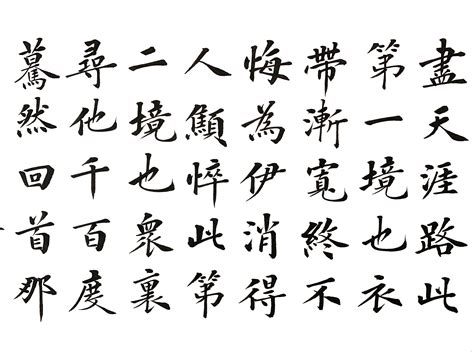 盡天涯路此
第一境也衣
帶漸寬終不
悔為伊消得
人顦悴此第
二境也衆裏
尋他千百度
驀然回首那